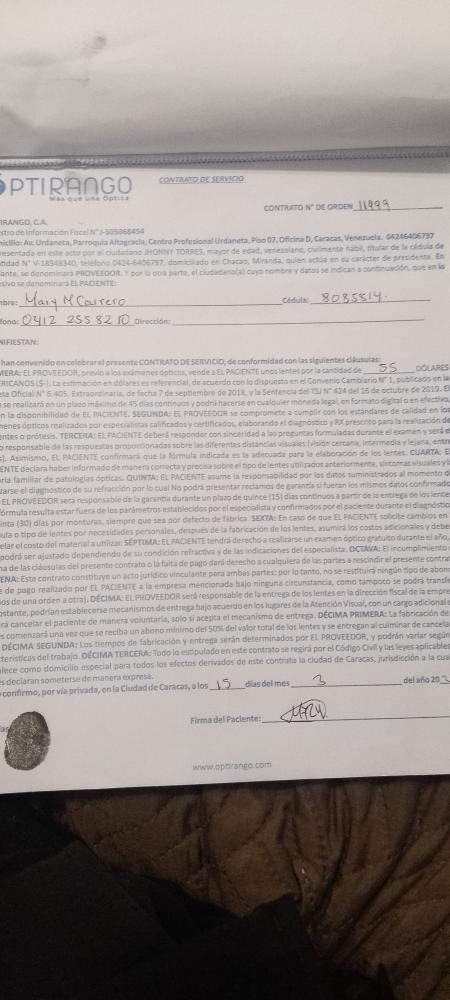 OPTIRANGO
Más que una Óptica
CONTRATO DE SERVICIO
CONTRATO N° DE ORDEN 11999
TIRANGO, C.A.
stro de Información Fiscal N° J-505868454
nicilio: Av. Urdaneta, Parroquia Altagracia, Centro Profesional Urdaneta, Piso 07, Oficina D, Caracas, Venezuela. 04246406797
resentada en este acto por el ciudadano JHONNY TORRES, mayor de edad, venezolano, civilmente hábil, titular de la cédula de
tidad N° V-18348340, teléfono 0424-6406797, domiciliado en Chacao, Miranda, quien actúa en su carácter de presidente. En
lante, se denominará PROVEEDOR. Y por la otra parte, el ciudadano(a) cuyo nombre y datos se indican a continuación, que en lo
esivo se denominará EL PACIENTE:
mbre: Mary M Carrero Cédula: 8085814.
fono: 0412 2558210 Dirección:
NIFIESTAN:
han convenido en celebrar el presente CONTRATO DE SERVICIO, de conformidad con las siguientes cláusulas:
MERA: EL PROVEEDOR, previo a los exámenes ópticos, vende a EL PACIENTE unos lentes por la cantidad de 55 DÓLARES
ERICANOS ($-). La estimación en dólares es referencial, de acuerdo con lo dispuesto en el Convenio Cambiario N° 1, publicado en la
eta Oficial N° 6.405, Extraordinaria, de fecha 7 de septiembre de 2018, y la Sentencia del TSJ N° 424 del 16 de octubre de 2019. El
o se realizará en un plazo máximo de 45 días continuos y podrá hacerse en cualquier moneda legal, en formato digital o en efectivo,
n la disponibilidad de EL PACIENTE. SEGUNDA: EL PROVEEDOR se compromete a cumplir con los estándares de calidad en los
menes ópticos realizados por especialistas calificados y certificados, elaborando el diagnóstico y RX prescrito para la realización de
entes o prótesis. TERCERA: EL PACIENTE deberá responder con sinceridad a las preguntas formuladas durante el examen y será e
o responsable de las respuestas proporcionadas sobre las diferentes distancias visuales (visión cercana, intermedia y lejana, entre
s). Asimismo, EL PACIENTE confirmará que la fórmula indicada es la adecuada para la elaboración de los lentes. CUARTA: E
ENTE declara haber informado de manera correcta y precisa sobre el tipo de lentes utilizados anteriormente, síntomas visuales y la
oria familiar de patologías ópticas. QUINTA: EL PACIENTE asume la responsabilidad por los datos suministrados al momento d
zarse el diagnostico de su refracción por lo cual No podrá presentar reclamos de garantía si fueran los mismos datos confirmado
EL PROVEEDOR será responsable de la garantía durante un plazo de quince (15) días continuos a partir de la entrega de los lente
fórmula resulta estar fuera de los parámetros establecidos por el especialista y confirmados por el paciente durante el diagnóstic
inta (30) días por monturas, siempre que sea por defecto de fábrica. SEXTA: En caso de que EL PACIENTE solicite cambios en
ula o tipo de lentes por necesidades personales, después de la fabricación de los lentes, asumirá los costos adicionales y debe
elar el costo del material a utilizar. SÉPTIMA: EL PACIENTE tendrá derecho a realizarse un examen óptico gratuito durante el año,
podrá ser ajustado dependiendo de su condición refractiva y de las indicaciones del especialista. OCTAVA: El incumplimiento
na de las cláusulas del presente contrato o la falta de pago dará derecho a cualquiera de las partes a rescindir el presente contra
ENA: Este contrato constituye un acto jurídico vinculante para ambas partes; por lo tanto, no se restituirá ningún tipo de abon
e de pago realizado por EL PACIENTE a la empresa mencionada bajo ninguna circunstancia, como tampoco se podrá transfe
os de una orden a otra). DÉCIMA: EL PROVEEDOR será responsable de la entrega de los lentes en la dirección fiscal de la empre
ostante, podrían establecerse mecanismos de entrega bajo acuerdo en los lugares de la Atención Visual, con un cargo adicional
rá cancelar el paciente de manera voluntaria, solo si acepta el mecanismo de entrega. DÉCIMA PRIMERA: La fabricación de
es comenzará una vez que se reciba un abono mínimo del 50% del valor total de los lentes y se entregan al culminar de cancela
DÉCIMA SEGUNDA: Los tiempos de fabricación y entrega serán determinados por EL PROVEEDOR, y podrán variar según
cterísticas del trabajo. DÉCIMA TERCERA: Todo lo estipulado en este contrato se regirá por el Código Civil y las leyes aplicables
lece como domicilio especial para todos los efectos derivados de este contrato la ciudad de Caracas, jurisdicción a la cua
s declaran someterse de manera expresa.
confirmo, por vía privada, en la Ciudad de Caracas, a los 15 días del mes 3 del año 202
Firma del Paciente:
www.optirango.com